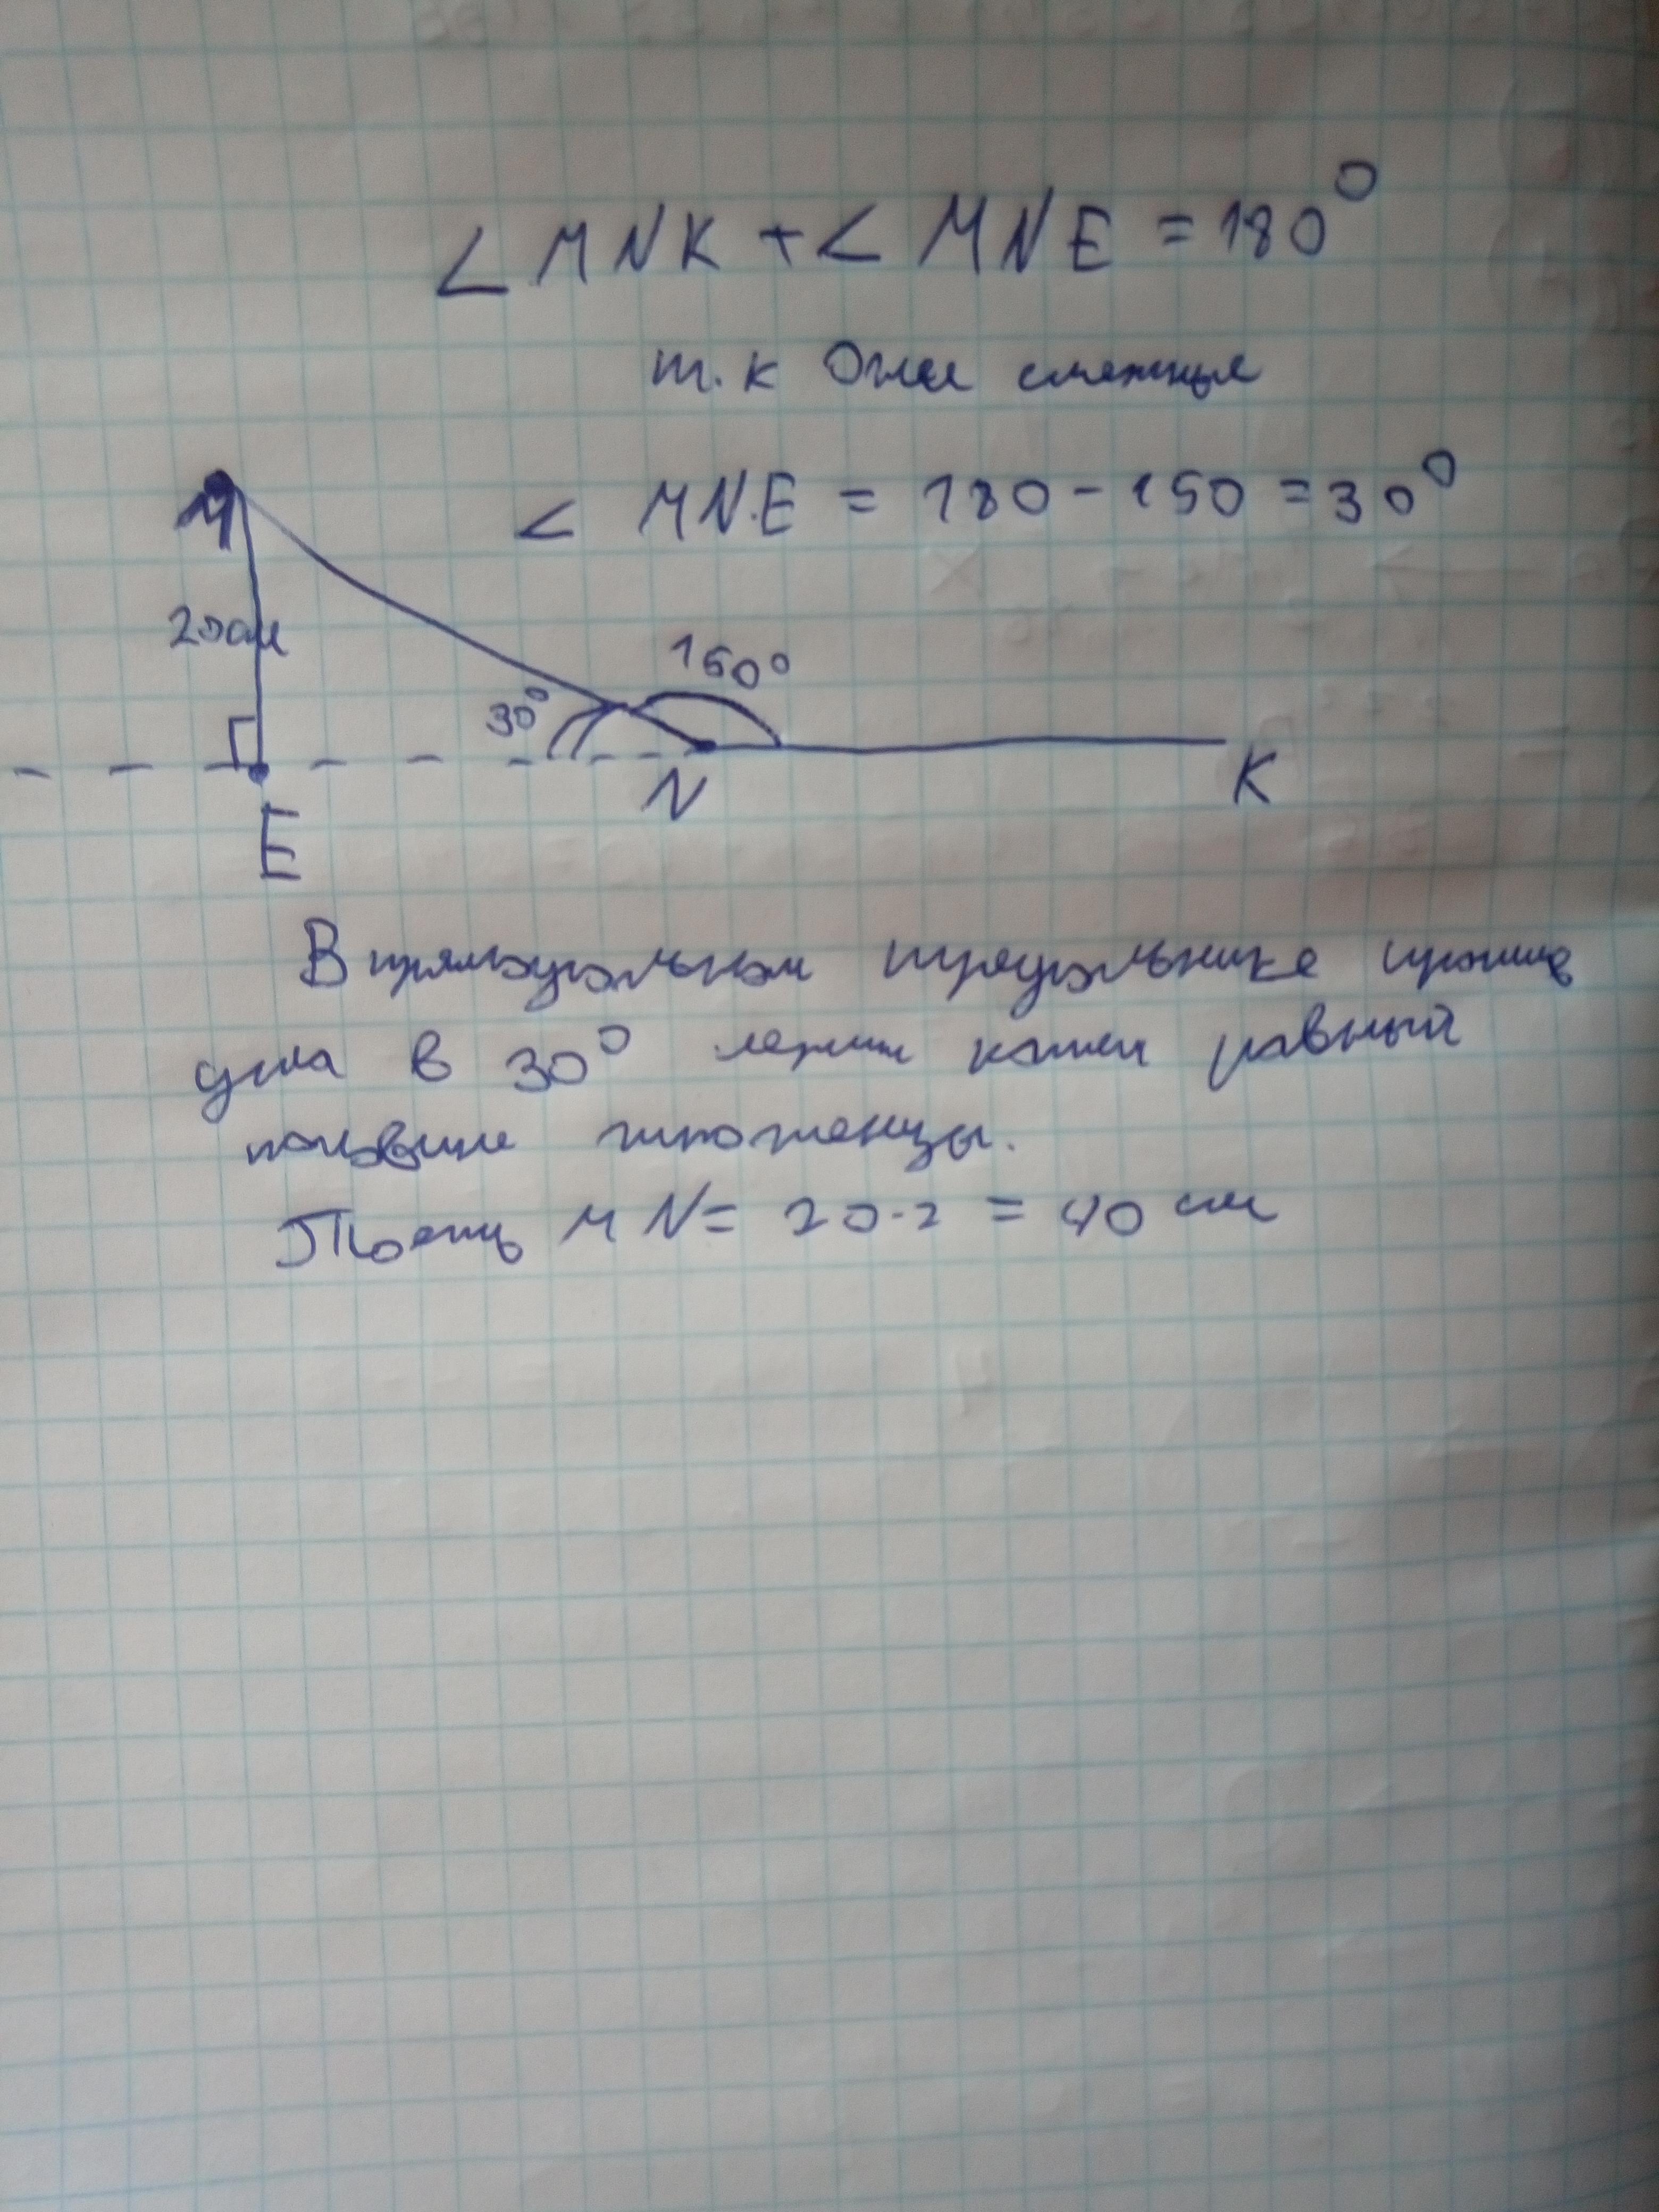 ∠MNK + ∠MNE = 180°
т.к Они смежные
∠ MNE = 180 - 150 = 30°
M
20см
30°
150°
N
K
E
В прямоугольном треугольнике против
угла в 30° лежит катет равный
половине гипотенузы.
То есть MN = 20·2 = 40 см